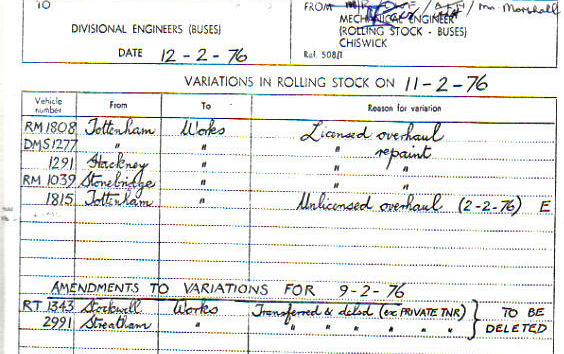 TO
FROM
Mr Marshall
DIVISIONAL ENGINEERS (BUSES)
MECHANICAL ENGINEER
(ROLLING STOCK - BUSES)
CHISWICK
DATE 12-2-76
Ref. 508/1
VARIATIONS IN ROLLING STOCK ON 11-2-76
Vehicle number From To Reason for variation
RM 1808 Tottenham Works Licensed overhaul
DMS 1277 " " " repaint
1291 Hackney " " "
RM 1039 Stonebridge " " "
1815 Tottenham " Unlicensed overhaul (2-2-76) E
AMENDMENTS TO VARIATIONS FOR 9-2-76
RT 1343 Stockwell Works Transferred & delsd (ex PRIVATE TNR) } TO BE
2991 Streatham " " " " " " } DELETED